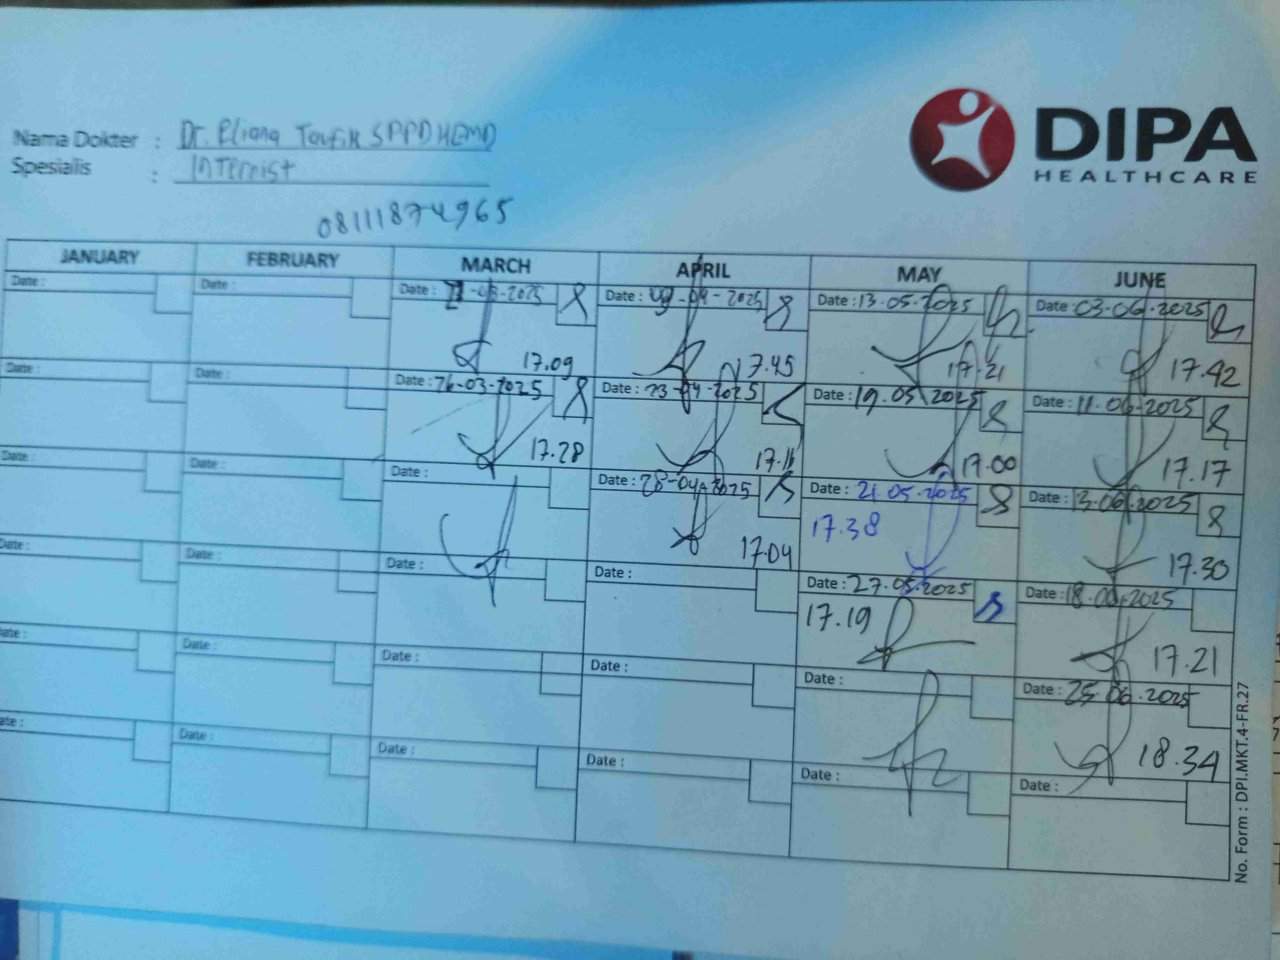 DIPA
HEALTHCARE
Nama Dokter : Dr. Eliana Taufik SPPD HEMD
Spesialis : Internist
08111874965
JANUARY FEBRUARY MARCH APRIL MAY JUNE
Date : Date : Date : -03-2025 Date : -04-2025 Date : 13.05.2025 Date : 03.06.2025
17.09 17.45 17.21 17.42
Date : Date : Date : 26-03-2025 Date : 23-04-2025 Date : 19.05.2025 Date : 11.06.2025
17.28 17.11 17.00 17.17
Date : Date : Date : Date : 28-04-2025 Date : 21.05.2025 Date : 13.06.2025
17.04 17.38 17.30
Date : Date : Date : Date : Date : 27.05.2025 Date : 18.06.2025
17.19 17.21
Date : Date : Date : Date : Date : Date : 25.06.2025
18.34
Date : Date : Date : Date : Date : Date :
No. Form : DPI.MKT.4-FR.27